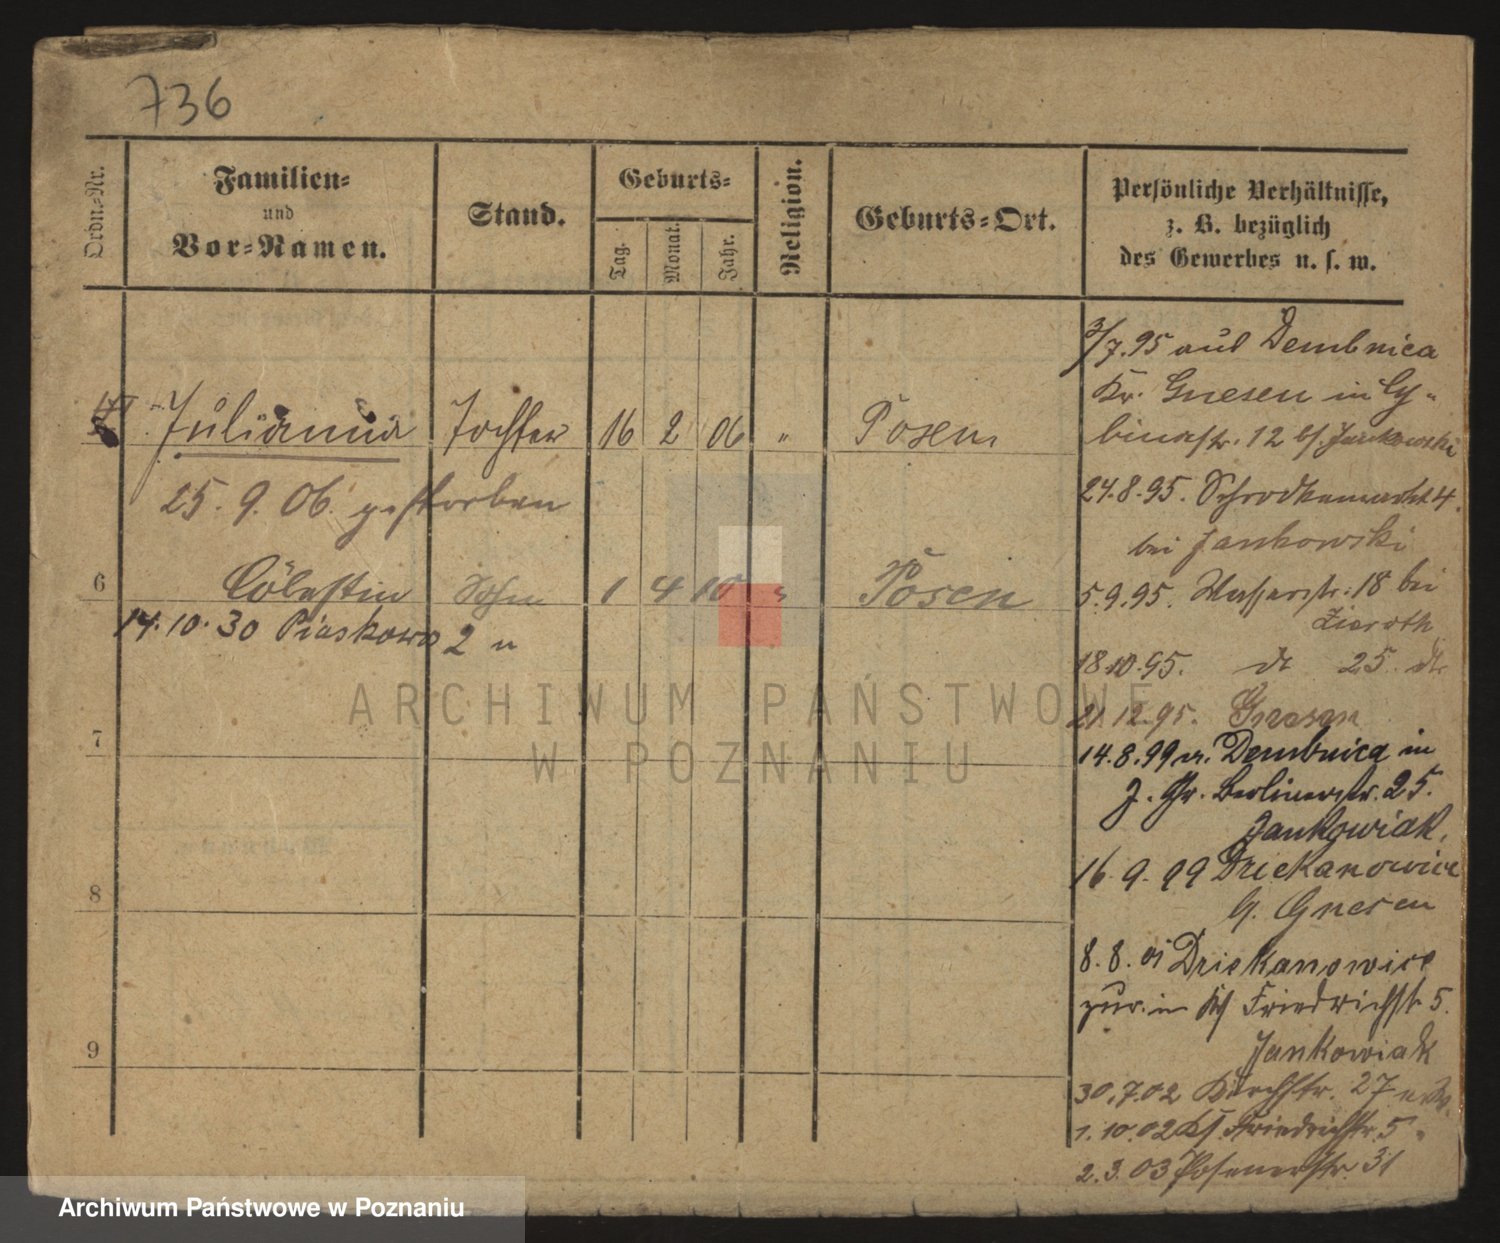 736
Ordn.-Nr.
Familien-
und
Vor-Namen.
Stand.
Geburts-
Tag.
Monat.
Jahr.
Religion.
Geburts-Ort.
Persönliche Verhältnisse,
z. B. bezüglich
des Gewerbes u. s. w.
Julianna Tochter 16 2 06 " Posen
25. 9. 06. gestorben
6 Cölestin Sohn 1 4 10 " Posen
14. 10. 30 Piaskowa 2 u
7
8
9
3/7.95 aus Dembnica
Kr. Gnesen in Cy-
binastr. 12 b/ Jankowski
24.8.95. Schrodkamarkt 4.
bei Jankowski
5.9.95. Wasserstr. 18 bei
Zieroth
18.10.95. dt 25 dt
21.12.95. Gnesen
14.8.99 v. Dembnica in
J. Gr. Berlinerstr. 25.
Jankowiak.
16. 9. 99 Dziekanowice
G. Gnesen
8. 8. 01 Dziekanowice
zur. in Friedrichstr 5.
Jankowiak
30.7.02 Kirchstr. 27
1.10.02 Friedrichstr. 5
2.3.03 Posenerstr 31
ARCHIWUM PAŃSTWOWE
W POZNANIU
Archiwum Państwowe w Poznaniu